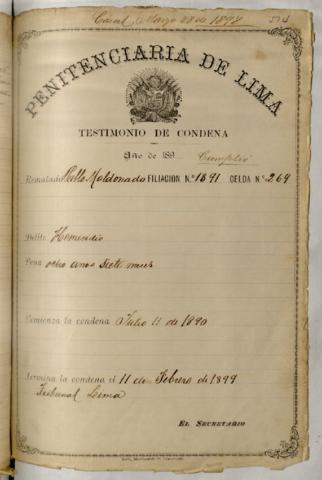 Marzo 28 de 1898
PENITENCIARIA DE LIMA
TESTIMONIO DE CONDENA
Año de 189
Cumplió
Rematado Maldonado FILIACION N.º 1891 CELDA N.º 269
Delito Homicidio
Pena ocho anos siete meses
Comienza la condena Julio 11 de 1890
Termina la condena el 11 de Febrero de 1899
Tribunal Lima
EL SECRETARIO